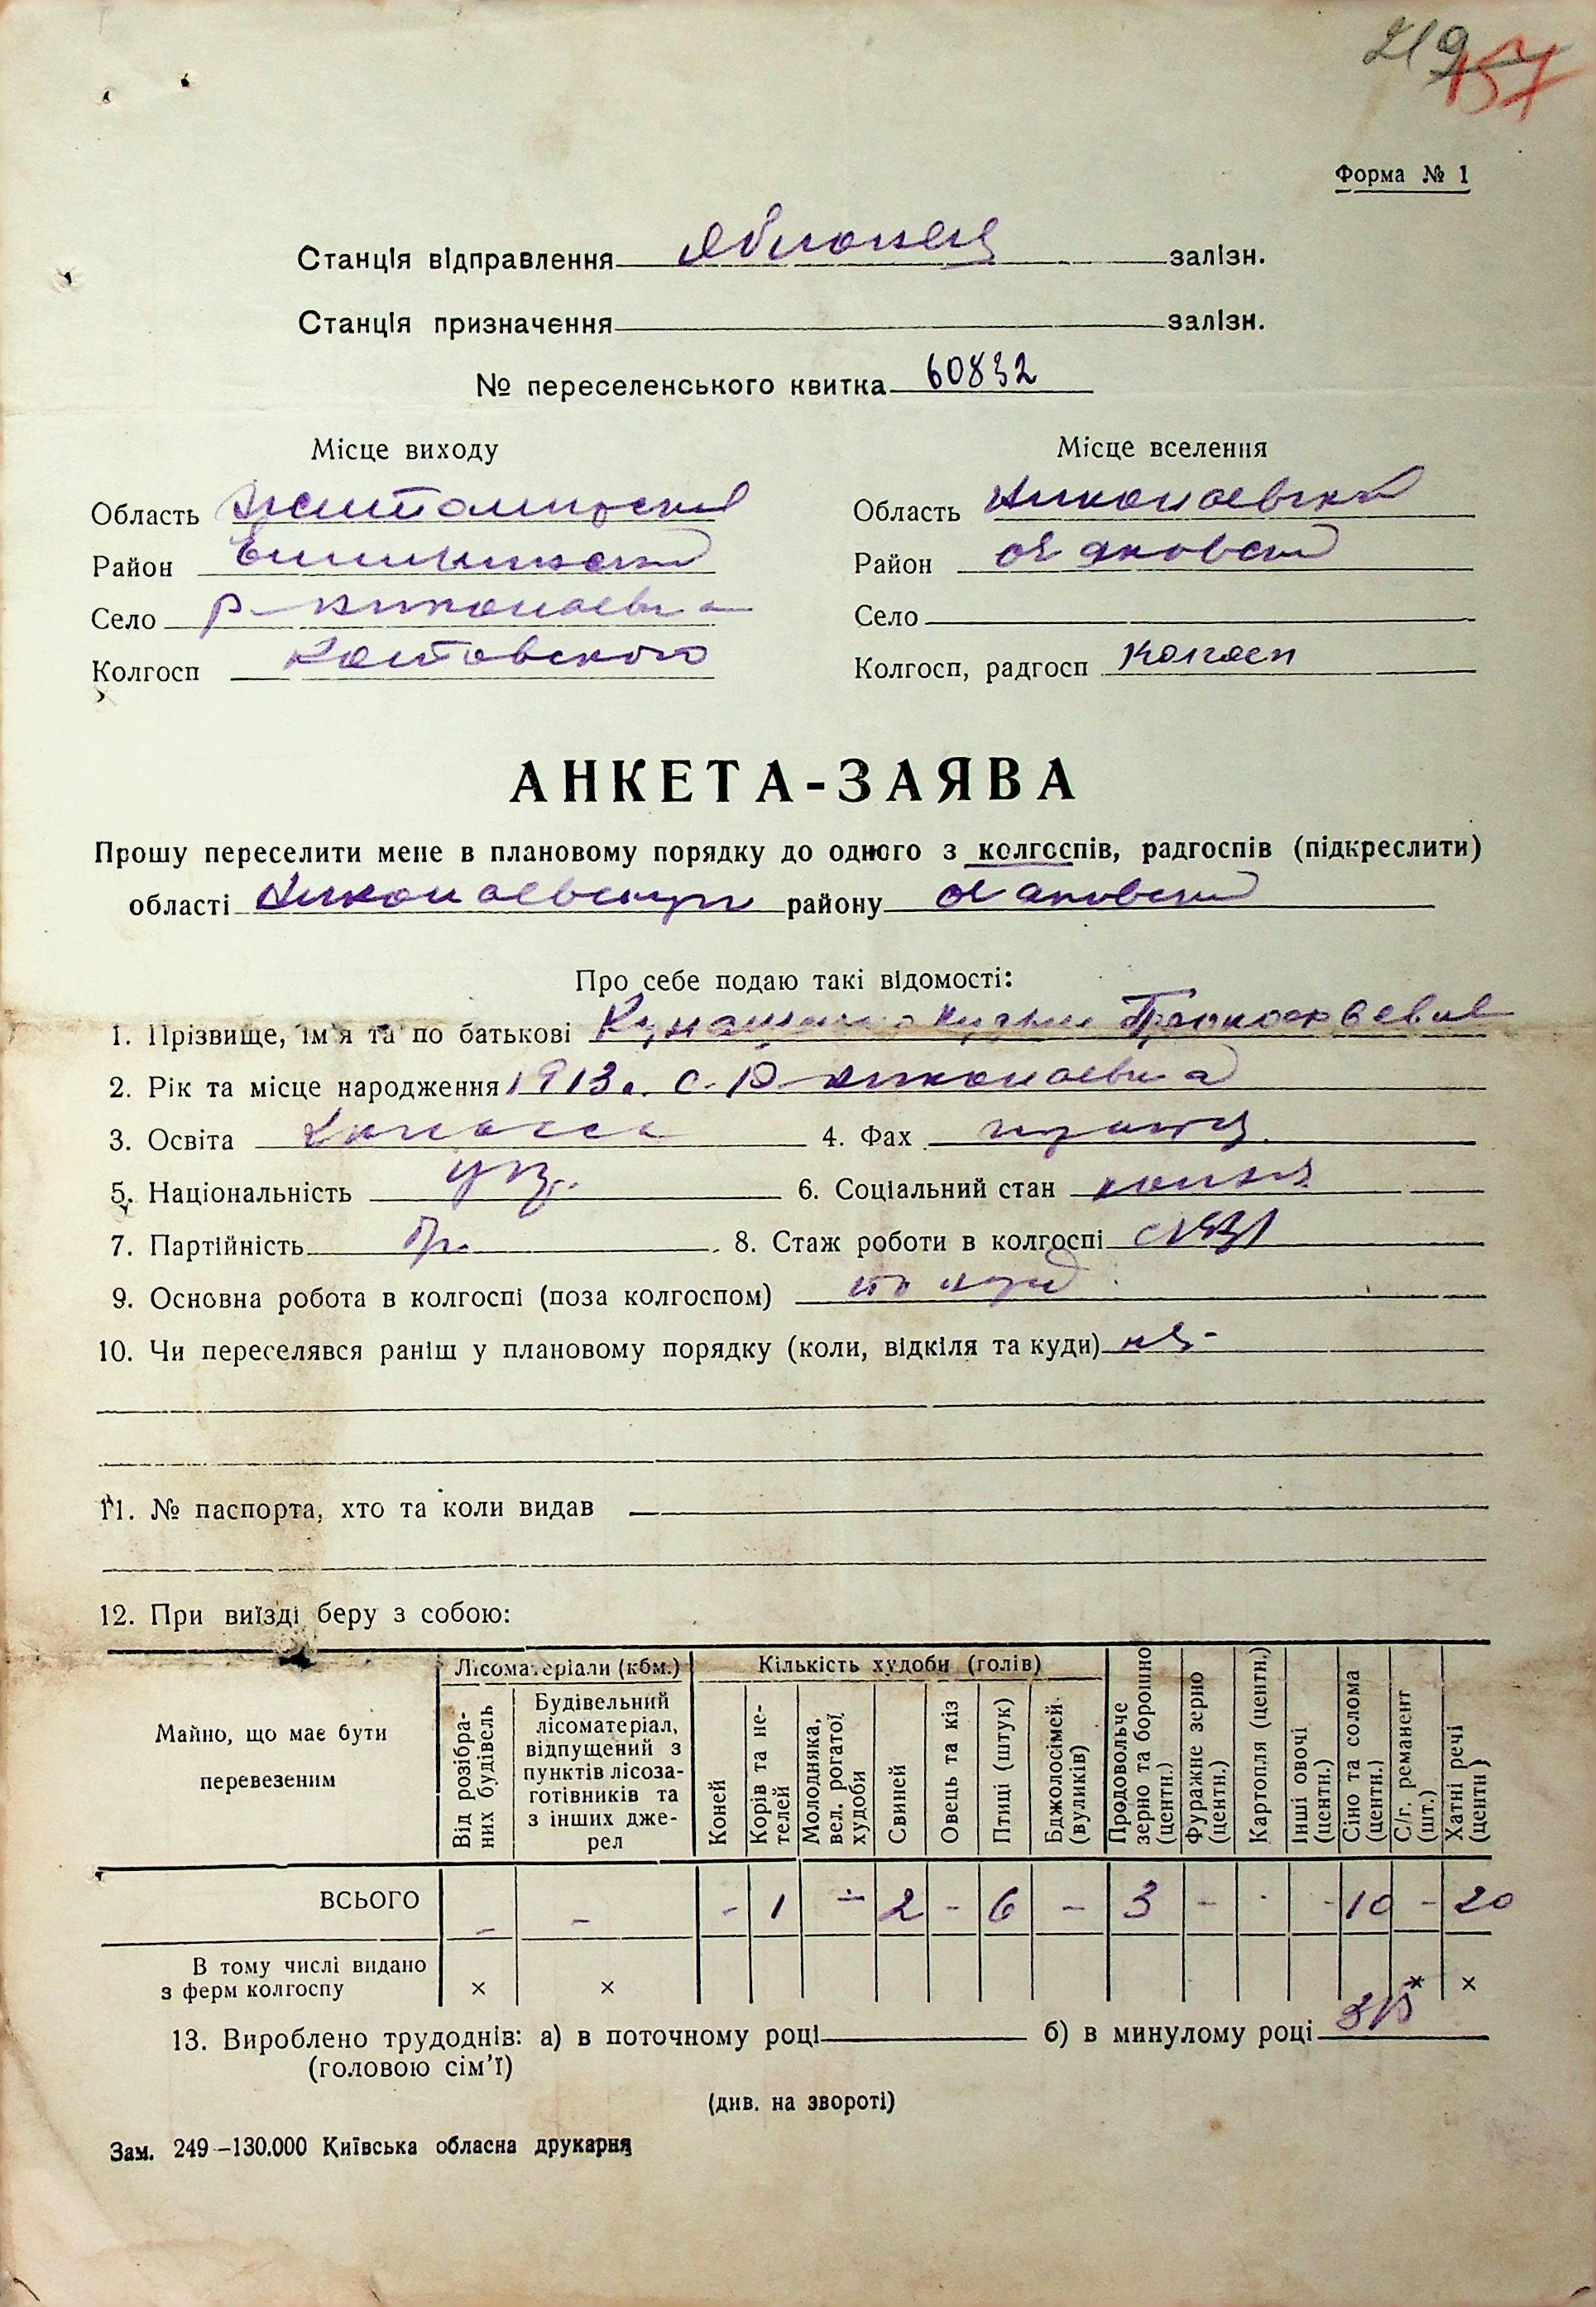 219 157
Форма № 1
Станція відправлення Яблонец залізн.
Станція призначення залізн.
№ переселенського квитка 60832
Місце виходу Місце вселення
Область Житомирская Область Николаевская
Район Емильчинский Район Очаковский
Село Р-Николаевка Село
Колгосп Котовского Колгосп, радгосп колхоз
АНКЕТА-ЗАЯВА
Прошу переселити мене в плановому порядку до одного з колгоспів, радгоспів (підкреслити)
області Николаевскую району Очаковский
Про себе подаю такі відомості:
1. Прізвище, ім'я та по батькові
2. Рік та місце народження 1913 г. с. Р-Николаевка
3. Освіта 2 класса 4. Фах
5. Національність укр. 6. Соціальний стан
7. Партійність 8. Стаж роботи в колгоспі
9. Основна робота в колгоспі (поза колгоспом)
10. Чи переселявся раніш у плановому порядку (коли, відкіля та куди)
11. № паспорта, хто та коли видав
12. При виїзді беру з собою:
Майно, що має бути перевезеним
Лісоматеріали (кбм.)
Від розібраних будівель
Будівельний лісоматеріал, відпущений з пунктів лісозаготівників та з інших джерел
Кількість худоби (голів)
Коней
Корів та нетелей
Молодняка, вел. рогатої худоби
Свиней
Овець та кіз
Птиці (штук)
Бджолосімей (вуликів)
Продовольче зерно та борошно (центн.)
Фуражне зерно (центн.)
Картопля (центн.)
Інші овочі (центн.)
Сіно та солома (центн.)
С/г. реманент (шт.)
Хатні речі (центн)
ВСЬОГО - - - 1 - 2 - 6 - 3 - - - 10 - 20
В тому числі видано
з ферм колгоспу × × × ×
13. Вироблено трудоднів: а) в поточному році б) в минулому році
(головою сім'ї)
(див. на звороті)
Зам. 249–130.000 Київська обласна друкарня